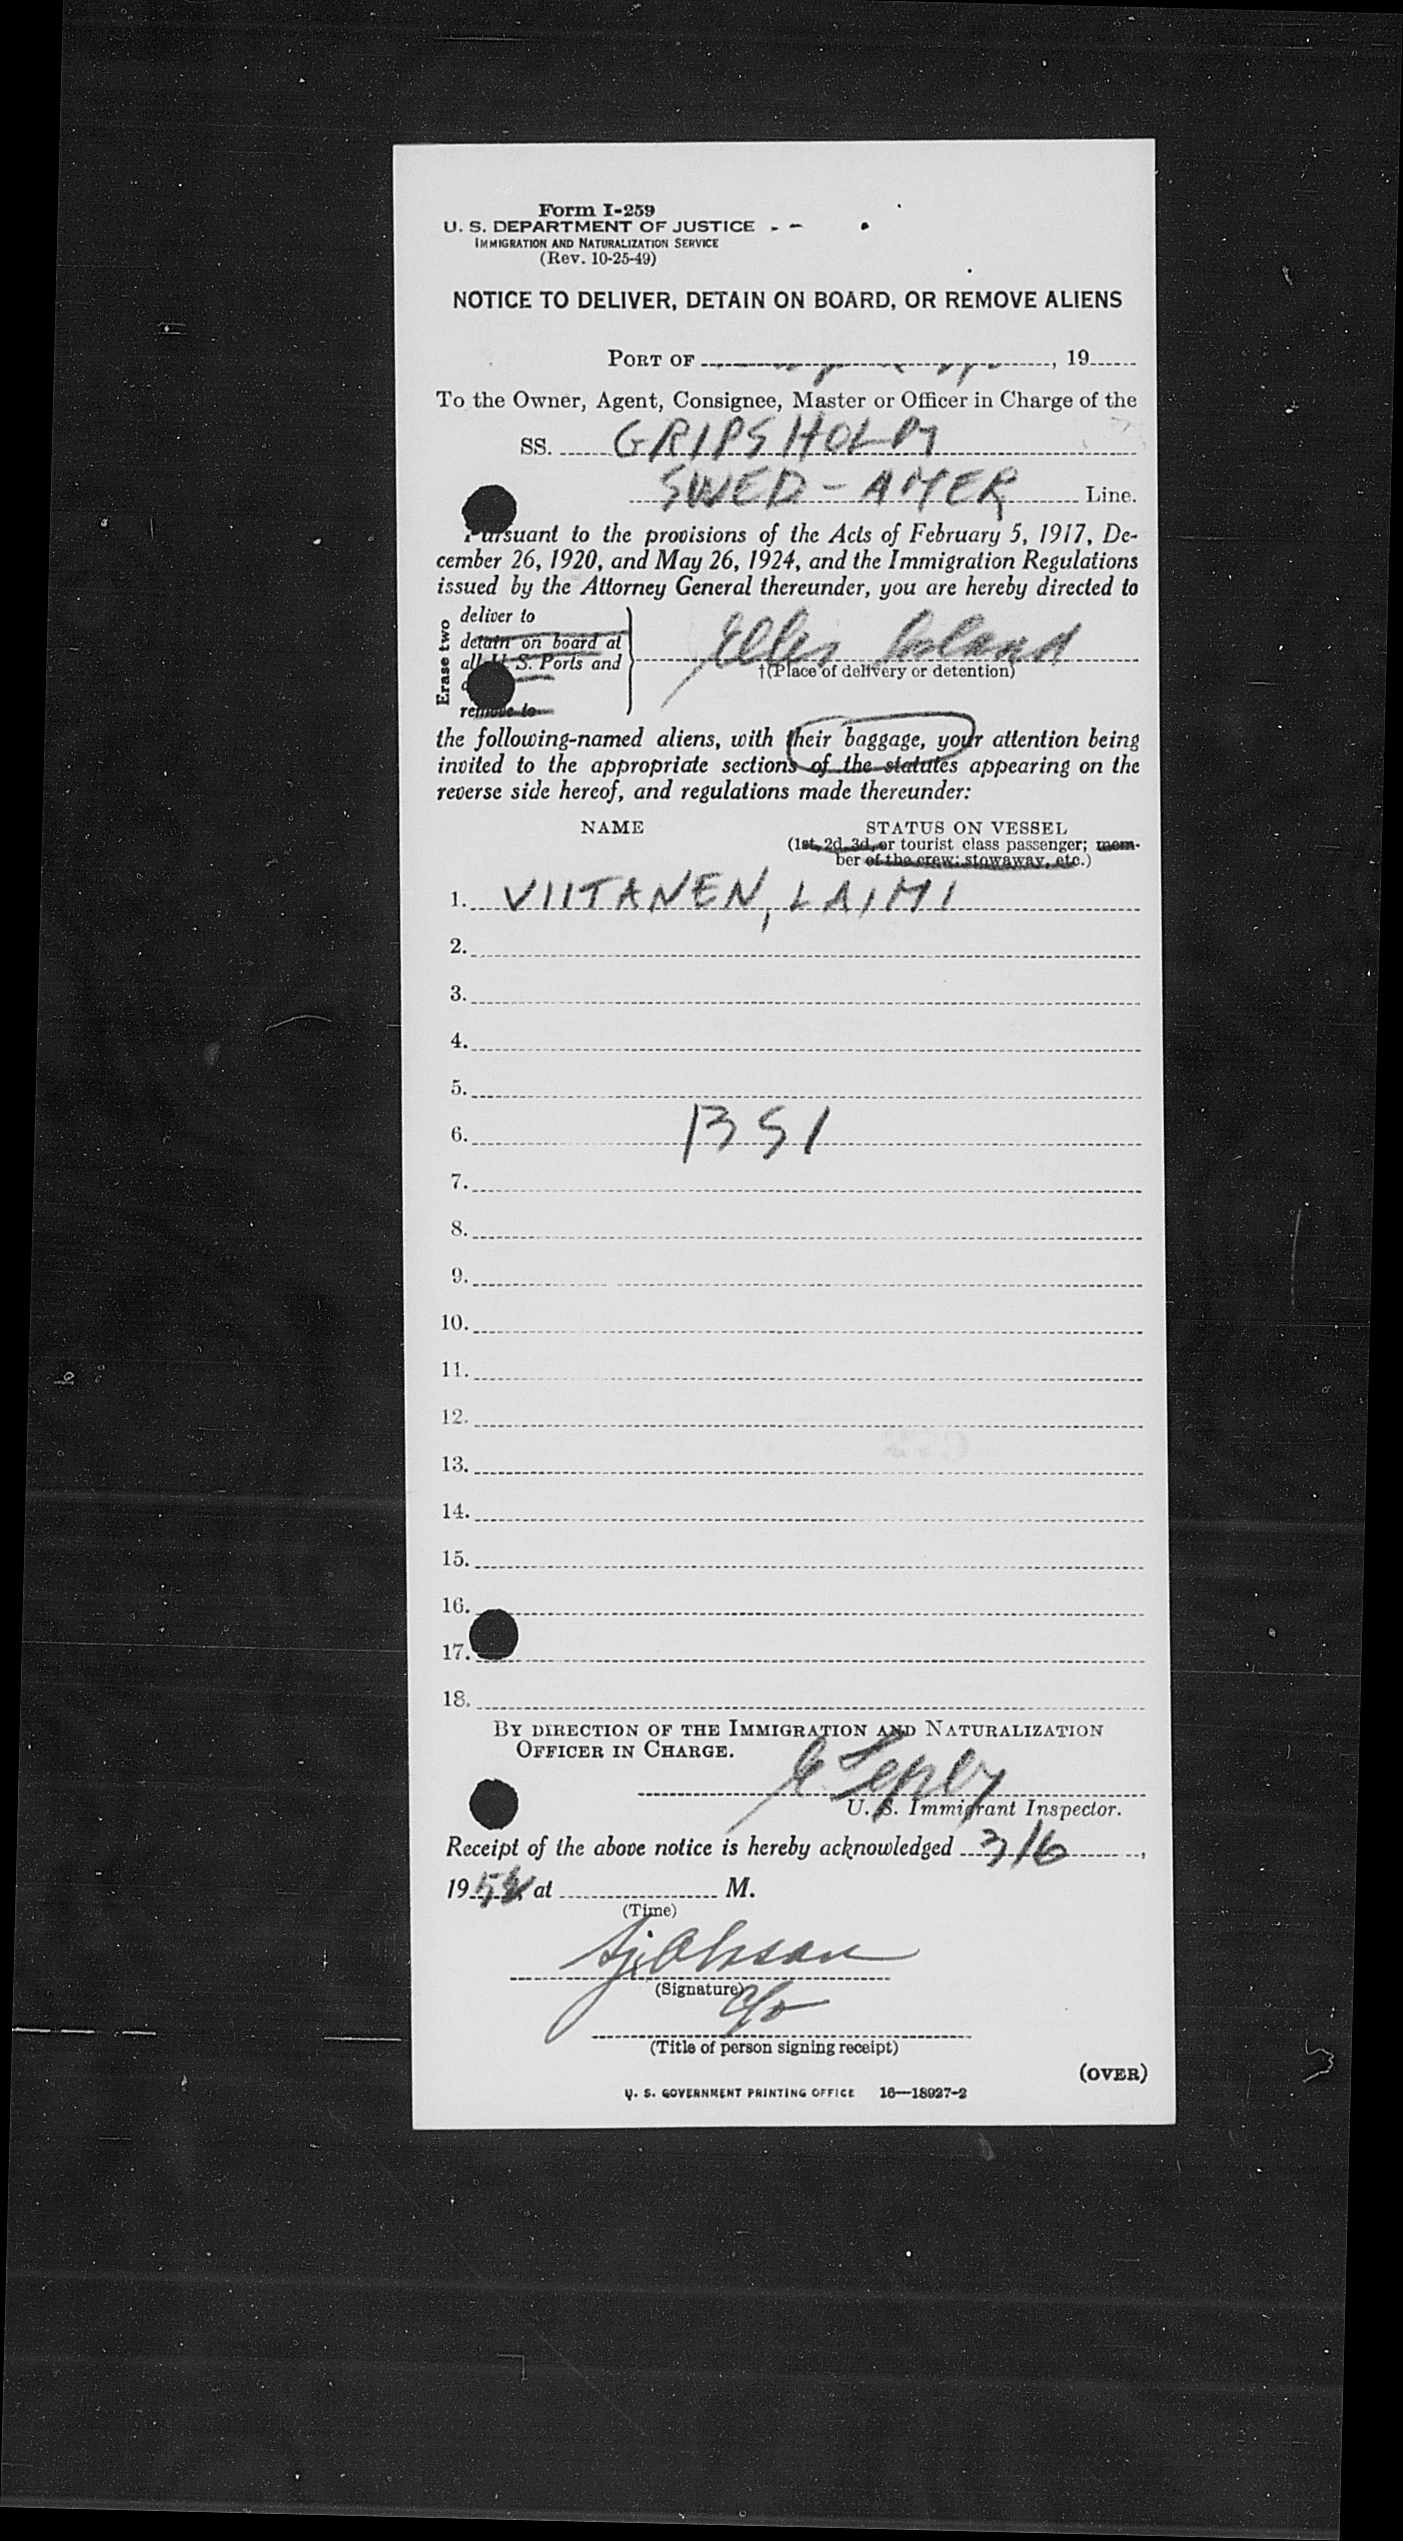 Form I-259
U. S. DEPARTMENT OF JUSTICE
IMMIGRATION AND NATURALIZATION SERVICE
(Rev. 10-25-49)
NOTICE TO DELIVER, DETAIN ON BOARD, OR REMOVE ALIENS
PORT OF , 19
To the Owner, Agent, Consignee, Master or Officer in Charge of the
SS. GRIPSHOLM
SWED-AMER Line.
Pursuant to the provisions of the Acts of February 5, 1917, De-
cember 26, 1920, and May 26, 1924, and the Immigration Regulations
issued by the Attorney General thereunder, you are hereby directed to
Erase two
deliver to
detain on board at
all U. S. Ports and
remove to
Ellis Island
†(Place of delivery or detention)
the following-named aliens, with their baggage, your attention being
invited to the appropriate sections of the statutes appearing on the
reverse side hereof, and regulations made thereunder:
NAME STATUS ON VESSEL
(1st, 2d, 3d, or tourist class passenger; mem-
ber of the crew; stowaway, etc.)
1. VIITANEN, LAIMI
2.
3.
4.
5.
6. BSI
7.
8.
9.
10.
11.
12.
13.
14.
15.
16.
17.
18.
BY DIRECTION OF THE IMMIGRATION AND NATURALIZATION
OFFICER IN CHARGE.
U. S. Immigrant Inspector.
Receipt of the above notice is hereby acknowledged 3/6,
19 at M.
(Time)
(Signature)
(Title of person signing receipt)
(OVER)
U. S. GOVERNMENT PRINTING OFFICE 16—18927-2